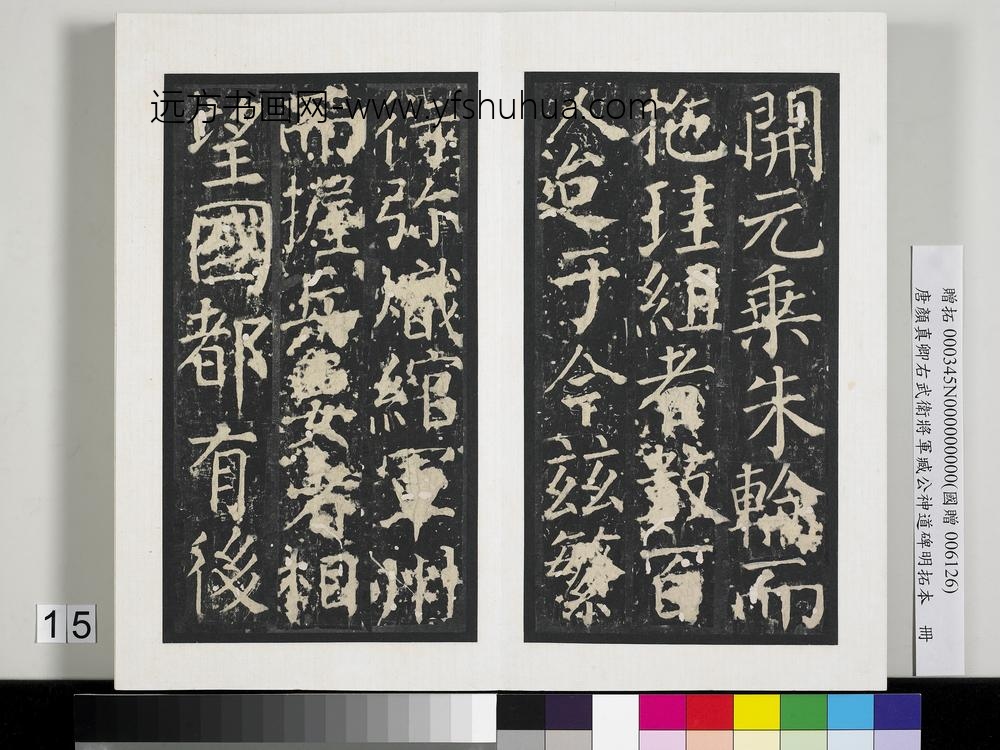 開元乗朱輪而
拖珪組者數百
人迨于今茲繁
衍弥熾綰軍州
而握兵要者相
望國都有後
远方书画网-www.yfshuhua.com
贈拓 000345N000000000(國贈 006126)
唐顏真卿右武衛將軍臧公神道碑明拓本 冊
15